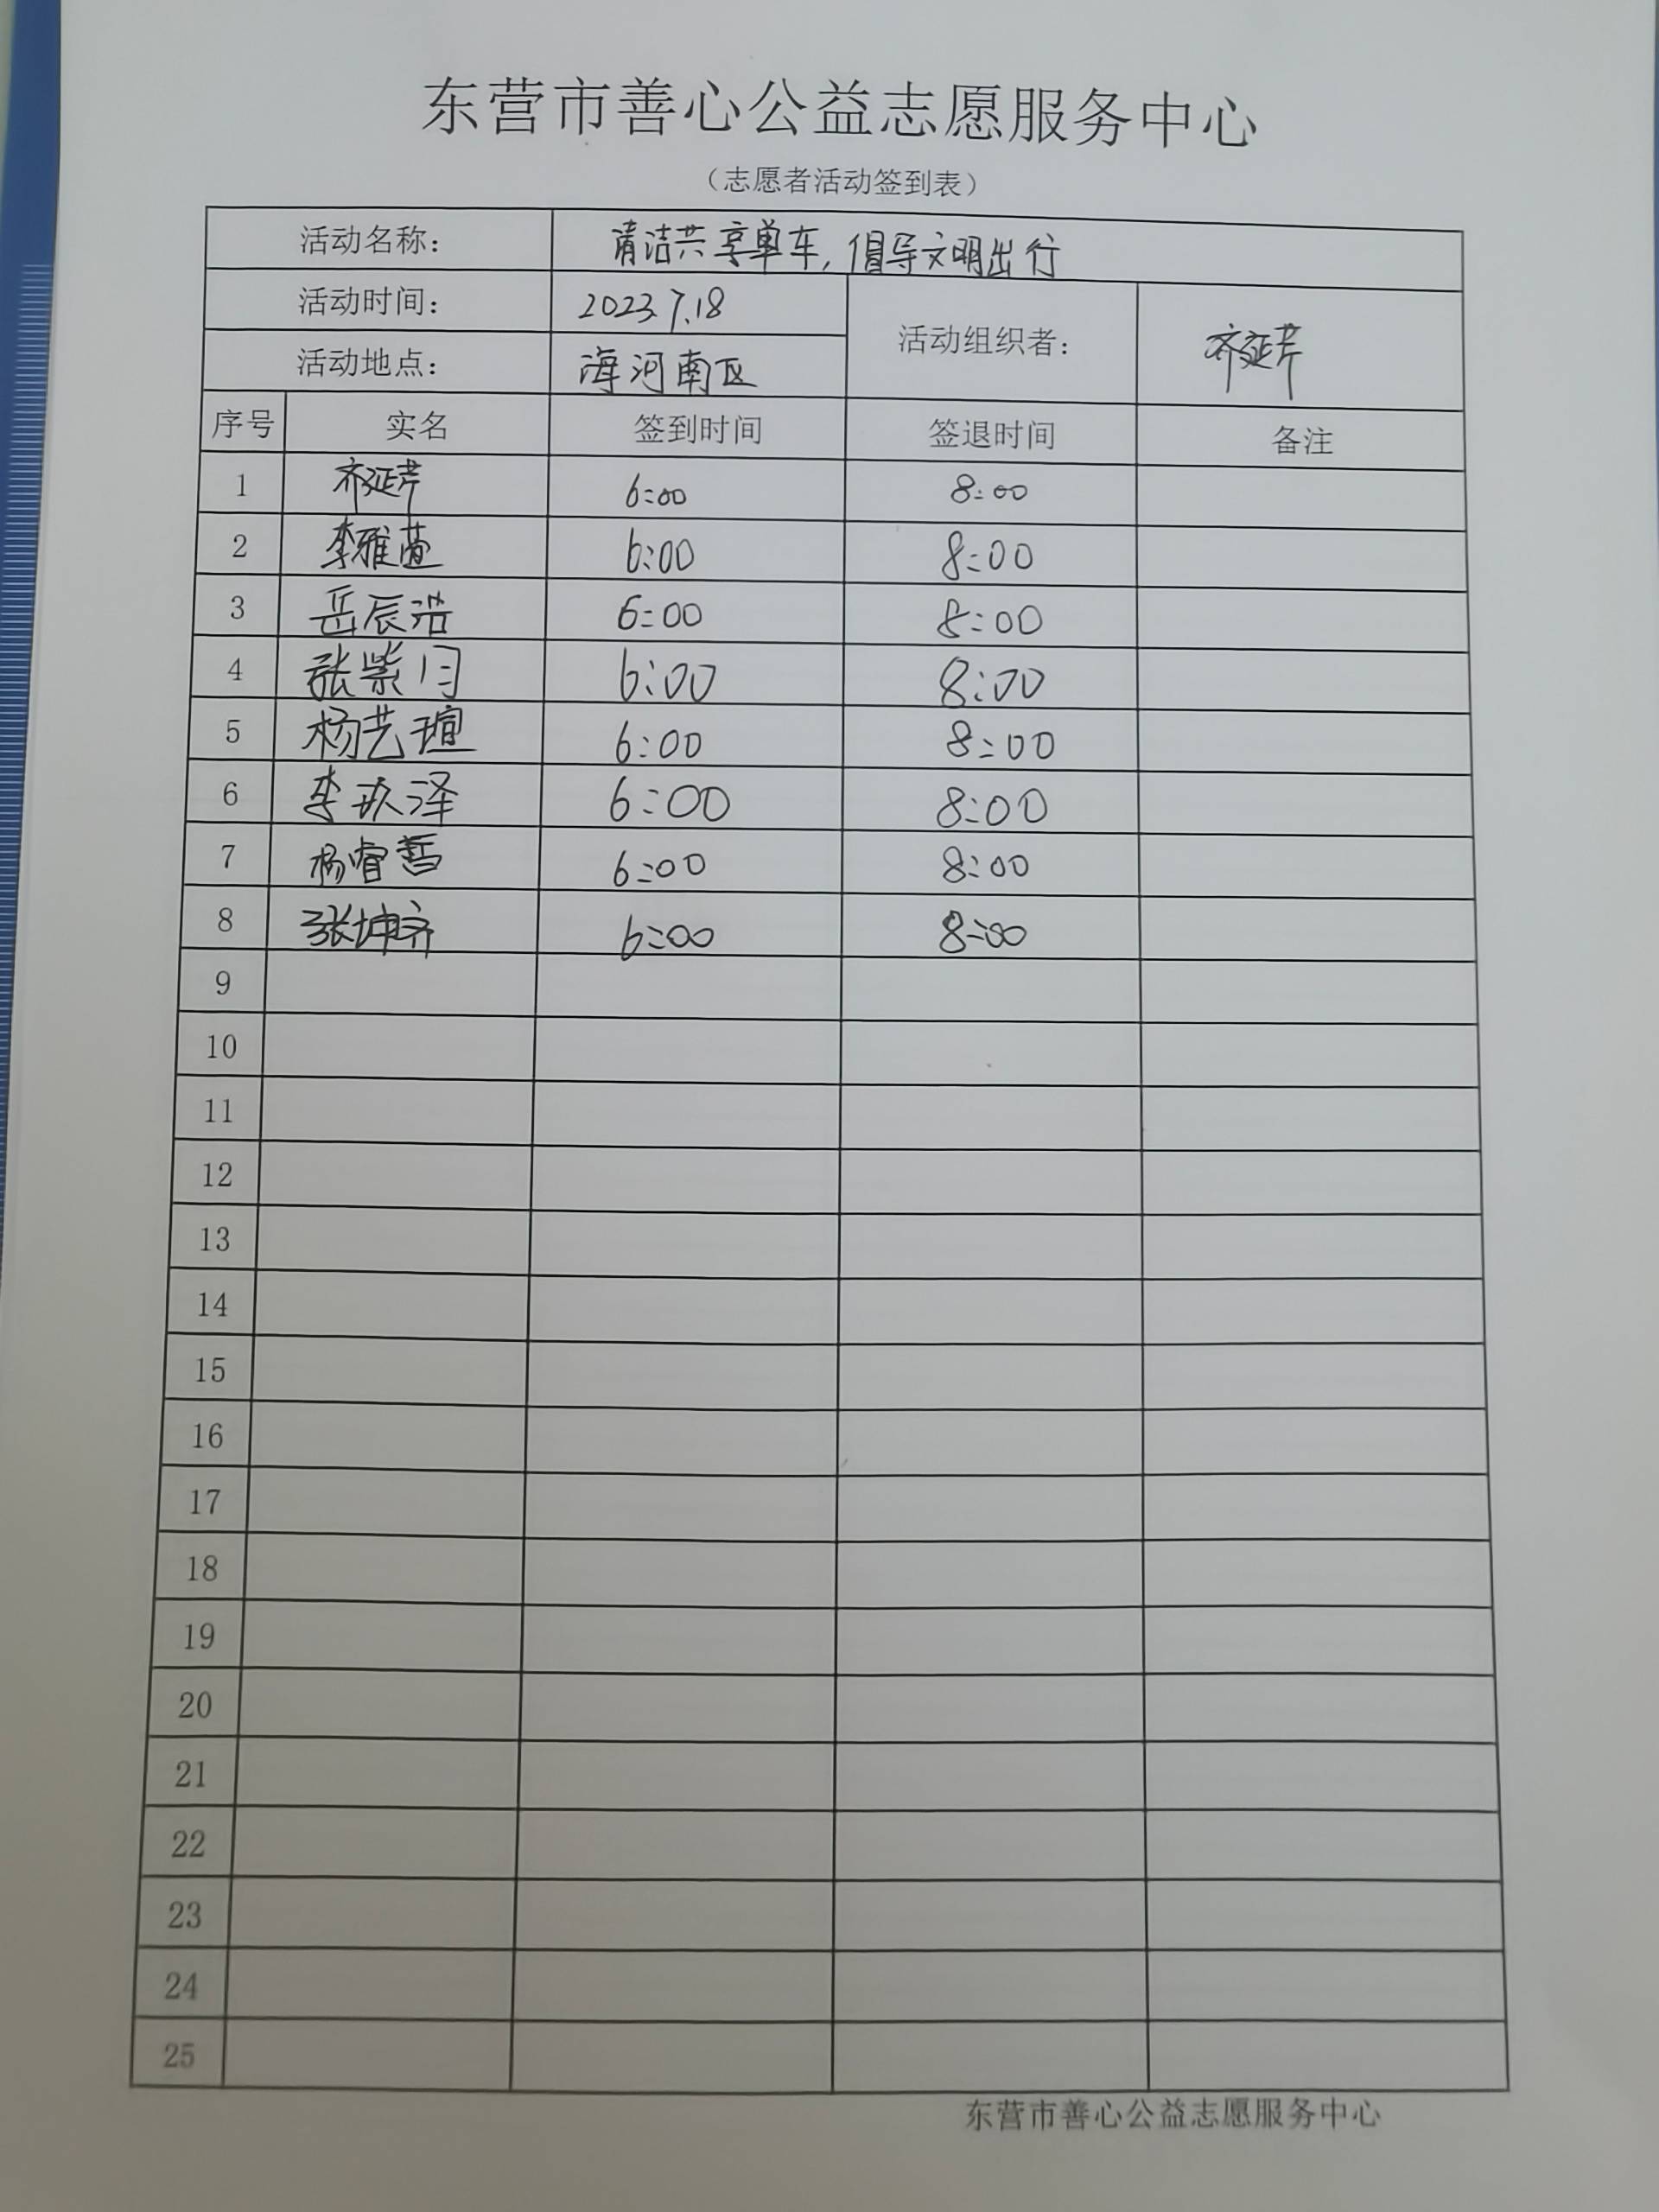 东营市善心公益志愿服务中心
（志愿者活动签到表）
活动名称： 清洁共享单车，倡导文明出行
活动时间： 2023.7.18
活动组织者： 齐延芹
活动地点： 海河南区
序号 实名 签到时间 签退时间 备注
1 齐延芹 6:00 8:00
2 李雅萱 6:00 8:00
3 岳辰浩 6:00 8:00
4 张紫闫 6:00 8:00
5 杨艺瑄 6:00 8:00
6 李玖泽 6:00 8:00
7 杨睿哲 6:00 8:00
8 张坤齐 6:00 8:00
9
10
11
12
13
14
15
16
17
18
19
20
21
22
23
24
25
东营市善心公益志愿服务中心